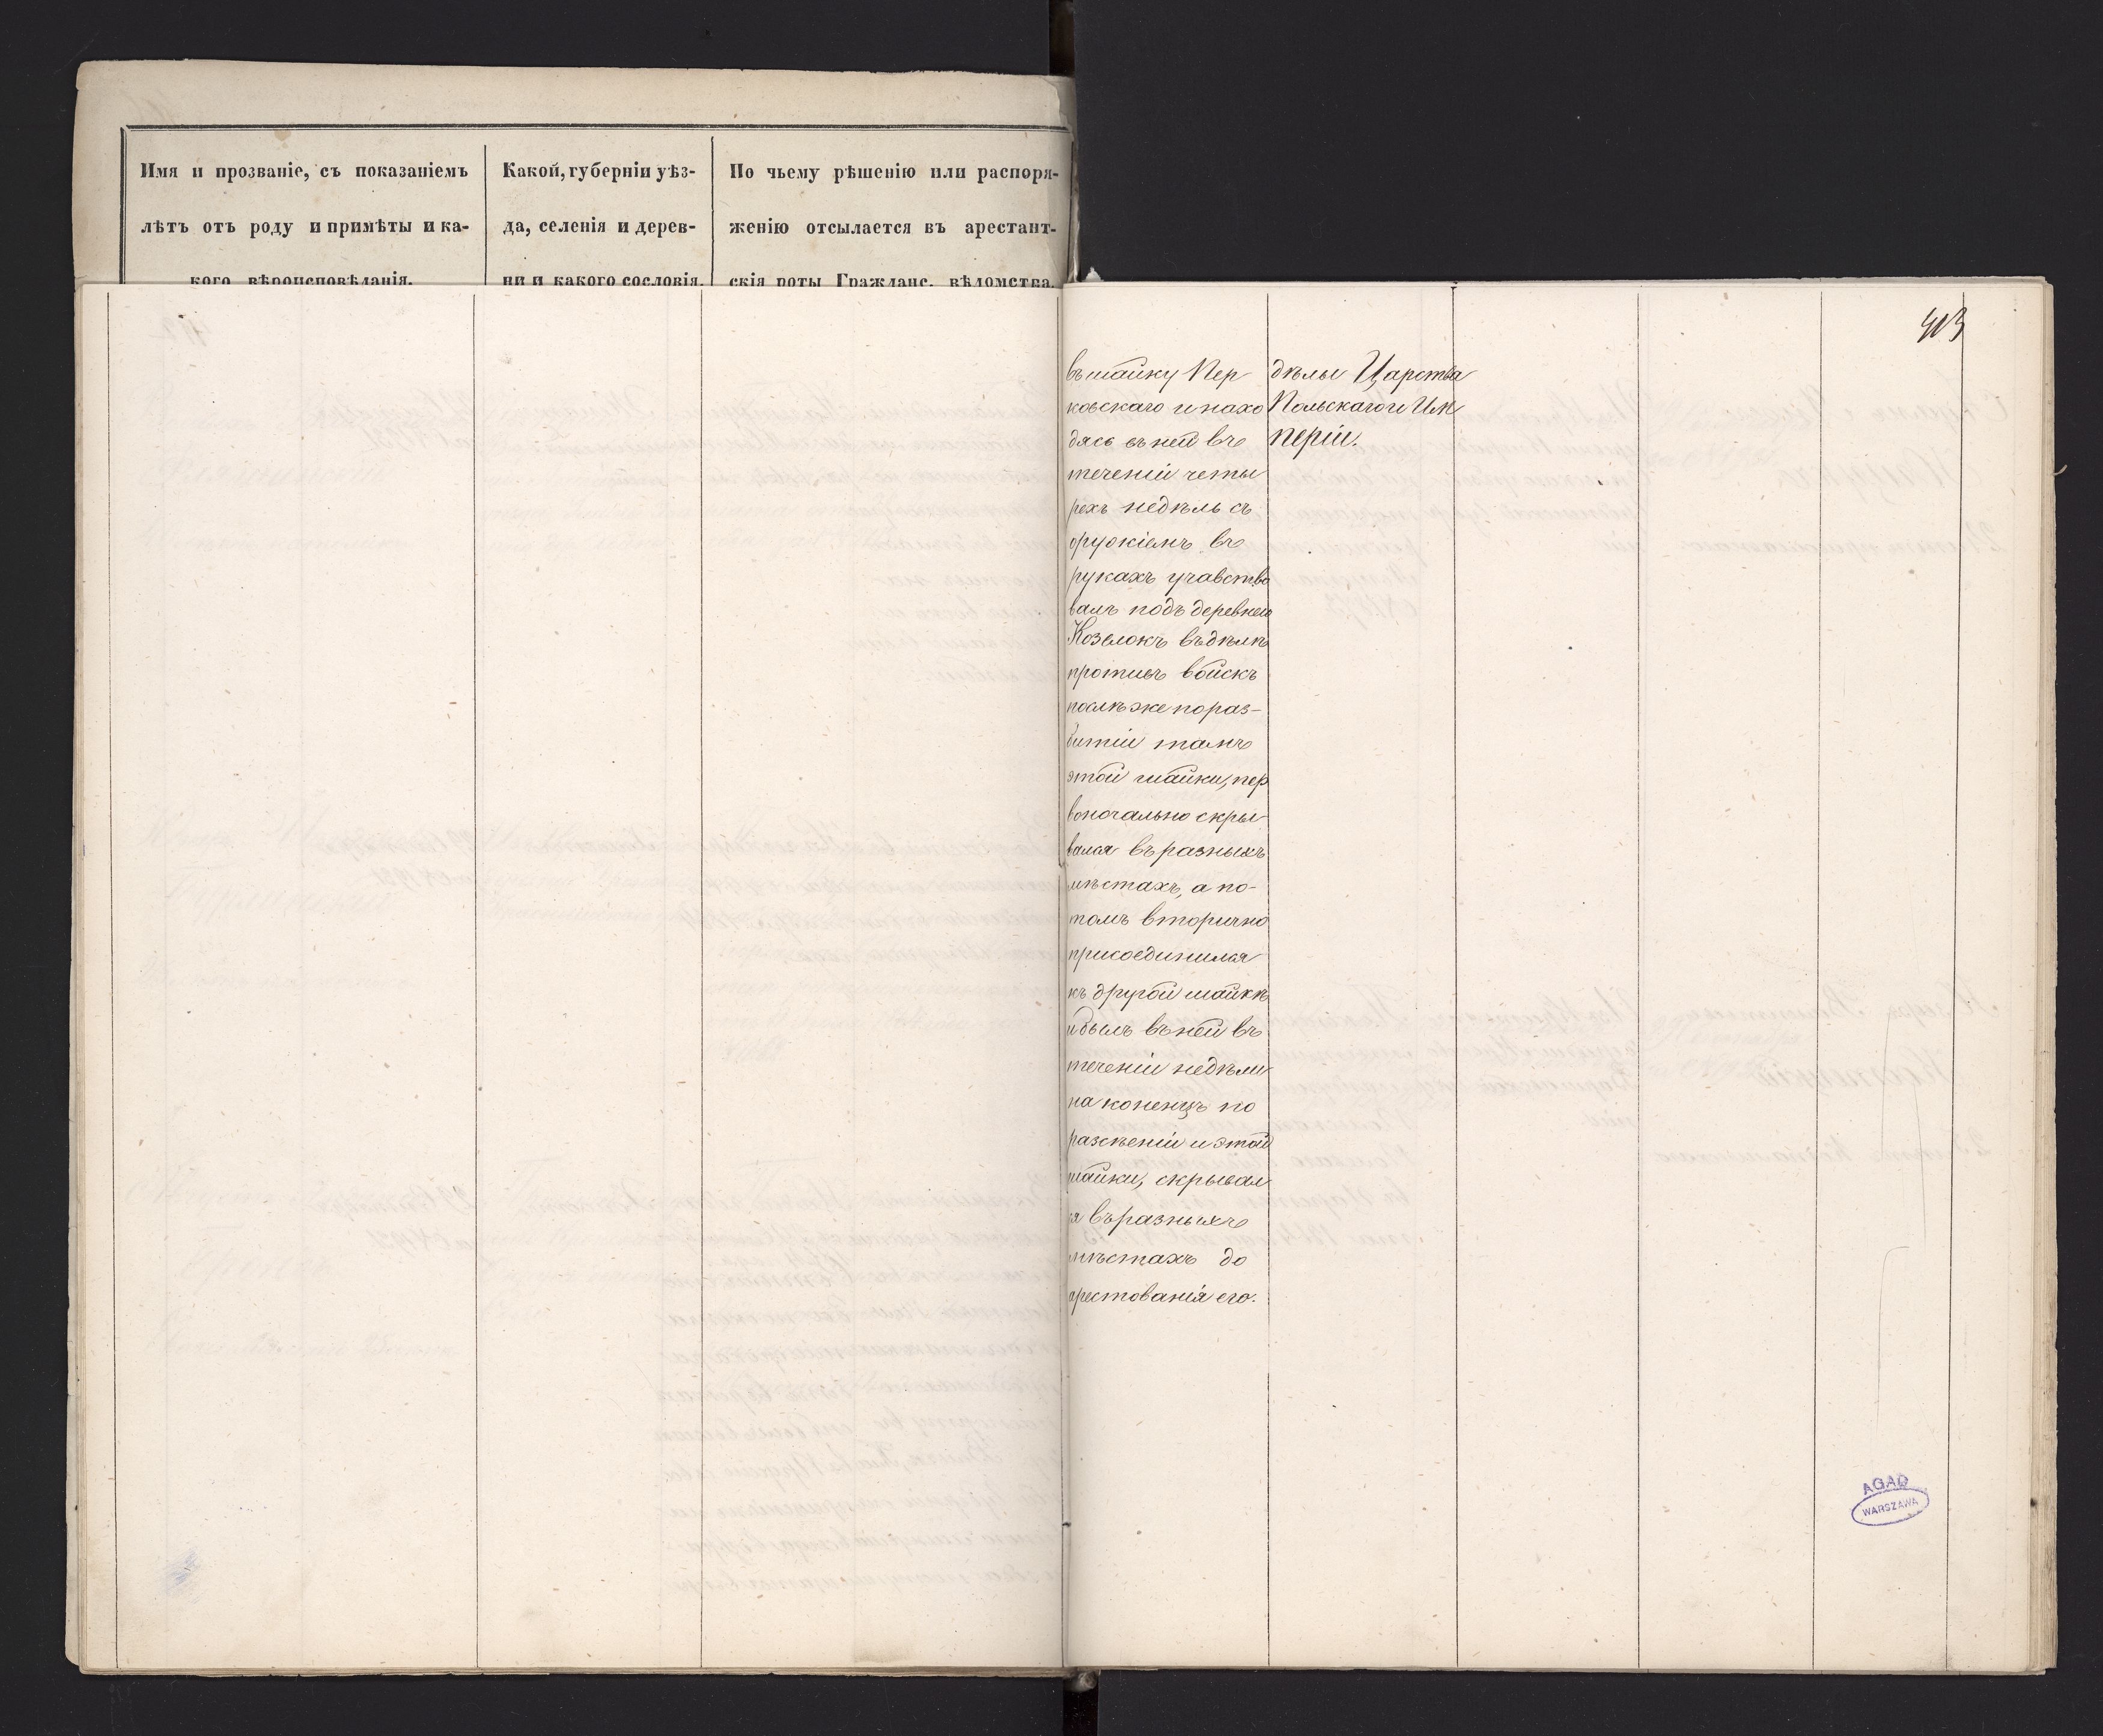 Имя и прозваніе, съ показаніемъ
лѣтъ отъ роду и примѣты и ка-
кого вѣроисповѣданія.
Какой, губерніи уѣз-
да, селенія и дерев-
ни и какого сословія.
По чьему рѣшенію или распоря-
женію отсылается въ арестант-
скія роты Гражданс. вѣдомства.
413
въ шайку Пер
ковскаго и нахо
дясь въ ней въ
теченіи четы
рехъ недѣль съ
оружіемъ въ
рукахъ учавство
валъ подъ деревнею
Козелокъ въ дѣлѣ
противъ войскъ
послѣ же по раз-
битіи тамъ
этой шайки, пер
воначально скры
вался въ разныхъ
мѣстахъ, а по-
томъ вторично
присоединился
къ другой шайкѣ
и былъ въ ней въ
теченіи недѣли
на конецъ по
разсѣеніи и этой
шайки, скрывал
ся въ разныхъ
мѣстахъ до
арестованія его.
дѣлы Царства
Польскаго и Им
періи.
AGAD
WARSZAWA